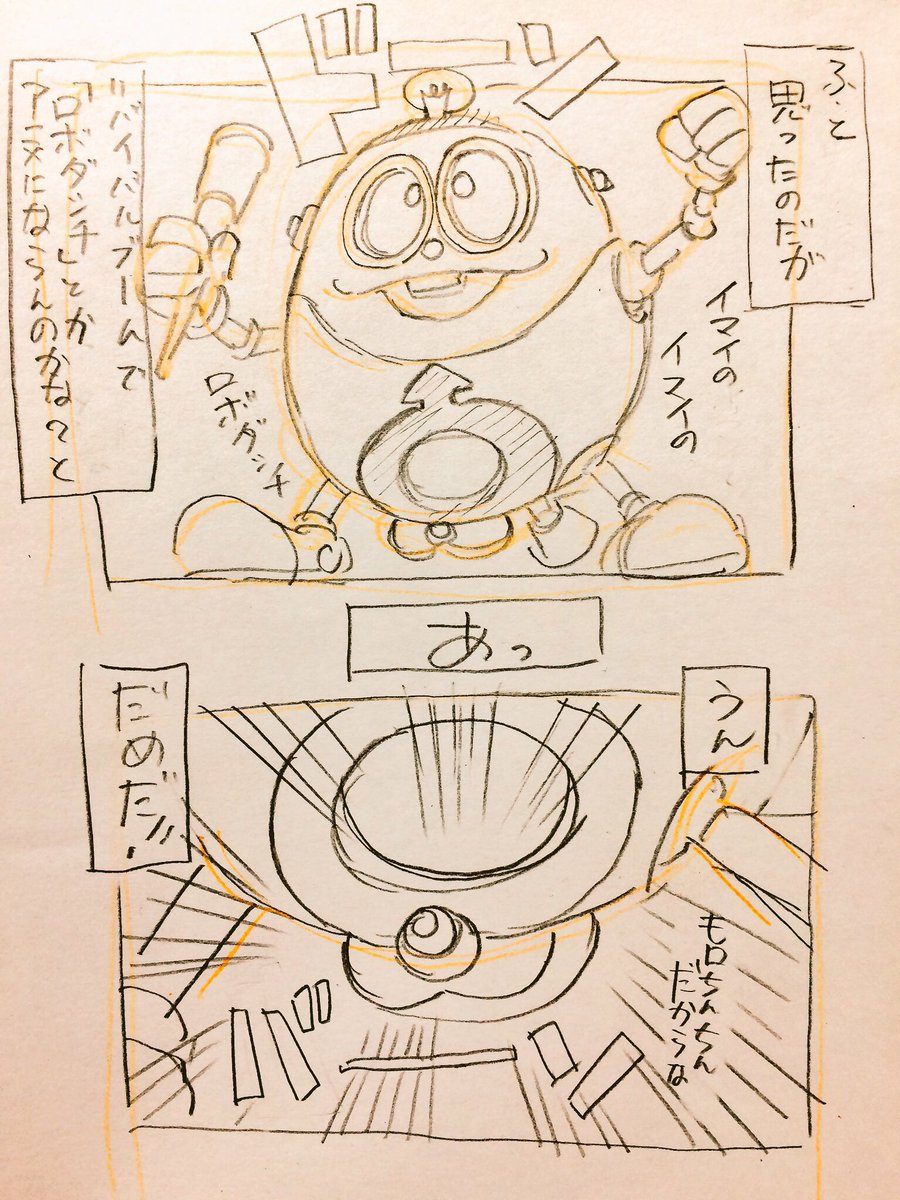 ふと
思ったのだが
ドーン
イマイの
イマイの
ロボダッチ
リバイバルブームで
「ロボダッチ」とか
アニメにならんのかな?と
あっ
うん
だめだ!!
もロちんちん
だからな
バーン